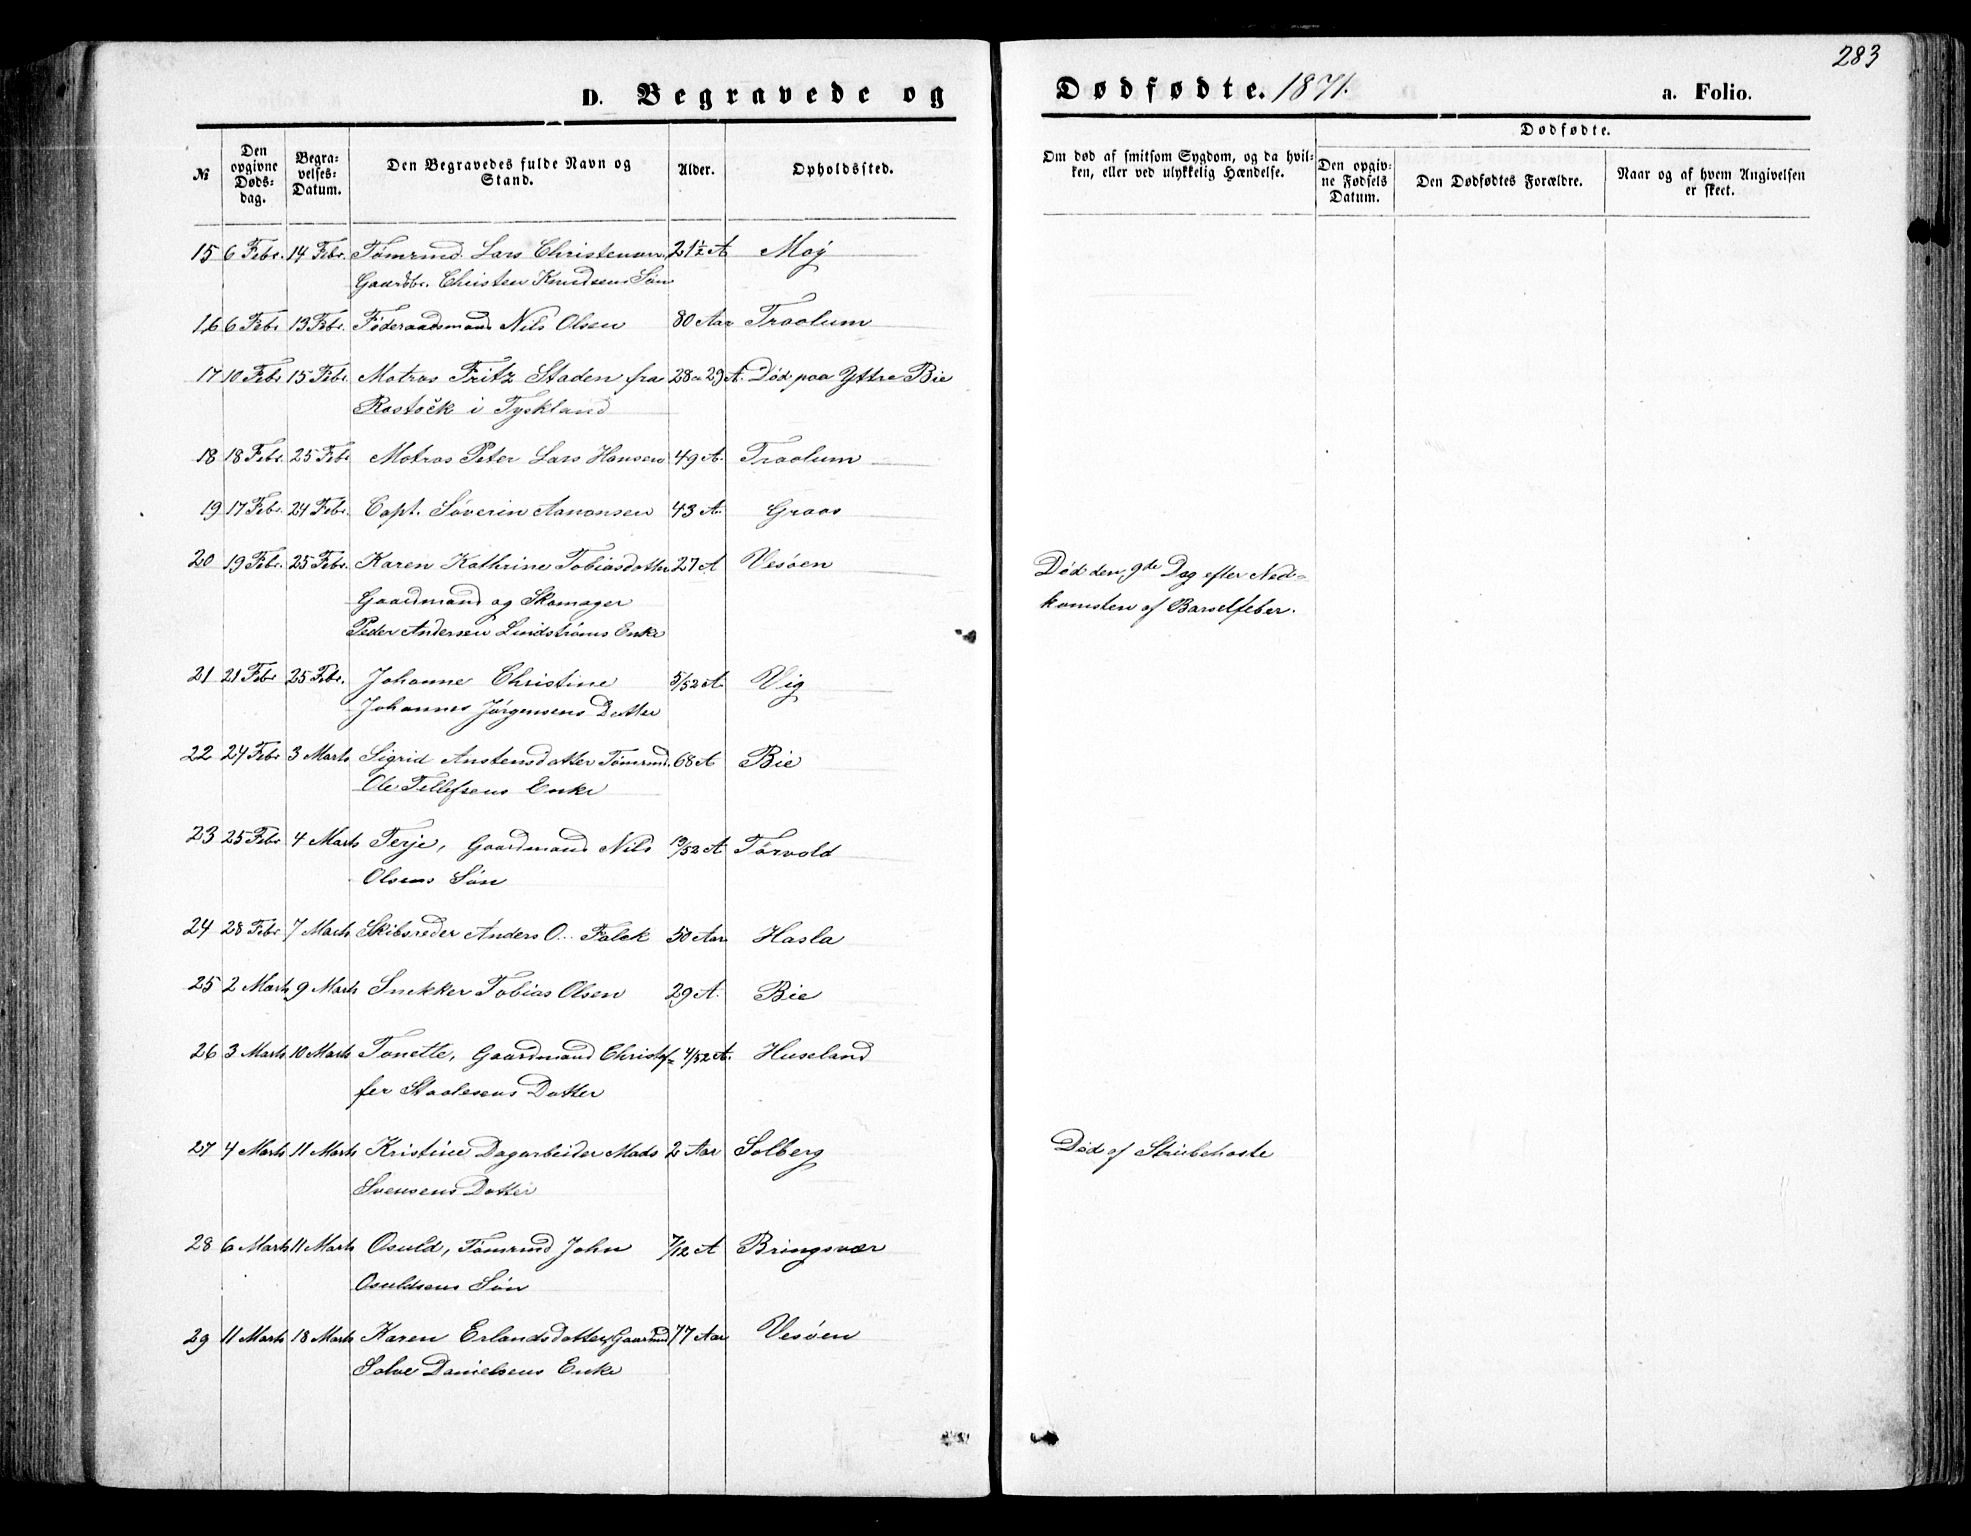 283
D. Begravede og Dødfødte. 1871. a. Folio.
№
Den opgivne Døds-dag.
Begra-velses-Datum.
Den Begravedes fulde Navn og Stand.
Alder.
Opholdssted.
Om død af smitsom Sygdom, og da hvil-ken, eller ved ulykkelig Hændelse.
Dødfødte.
Den opgiv-ne Fødsels Datum.
Den Dødfødtes Forældre.
Naar og af hvem Angivelsen er skeet.
15 6 Febr. 14 Febr. Tømrmd. Lars Christensen, 21½ A Moy
Gaardbr. Christen Knudsens Søn
16 6 Febr 13 Febr. Føderaadsmand Nils Olsen 80 Aar Traolum
17 10 Febr 15 Febr. Matros Fritz Staden fra 28 a 29 A. Død paa Yttre Bie
Rostock i Tyskland
18 18 Febr. 25 Febr Matros Peter Lars Hansen 49 A. Traolum
19 17 Febr. 24 Febr. Capt. Søverin Aanonsen 43 A. Graos
20 19 Febr. 25 Febr. Karen Kathrine Tobiasdatter 27 A Vesøen Død den 9de Dag efter Ned-
Gaardmand og Skomager komsten af Barselfeber.
Peder Andersen Lindstrøms Enke
21 21 Febr 25 Febr. Johanne Christine 5/52 A. Vig
Johannes Jørgensens Datter
22 24 Febr 3 Marts Sigrid Anstensdatter Tømrmd. 68 A Bie
Ole Tellefsens Enke
23 25 Febr 4 Marts Terje, Gaardmand Nils 19/52 A Tørvold
Olsens Søn
24 28 Febr 7 Marts Skibsreder Anders O. Falck 50 Aar Hasla
25 2 Marts 9 Marts Snekker Tobias Olsen 29 A. Bie
26 3 Marts 10 Marts Tonette, Gaardmand Christof= 4/52 A. Huseland
fer Staalesens Datter
27 4 Marts 11 Marts Kristine Dagarbeider Mads 2 Aar Solberg Død af Strubehoste
Svensens Datter
28 6 Marts 11 Marts Osuld, Tømrmd John 7/12 A Bringsvær
Osuldsens Søn
29 11 Marts 18 Marts Karen Erlandsdatter, Gaardmd 77 Aar Vesøen
Salve Danielsens Enke